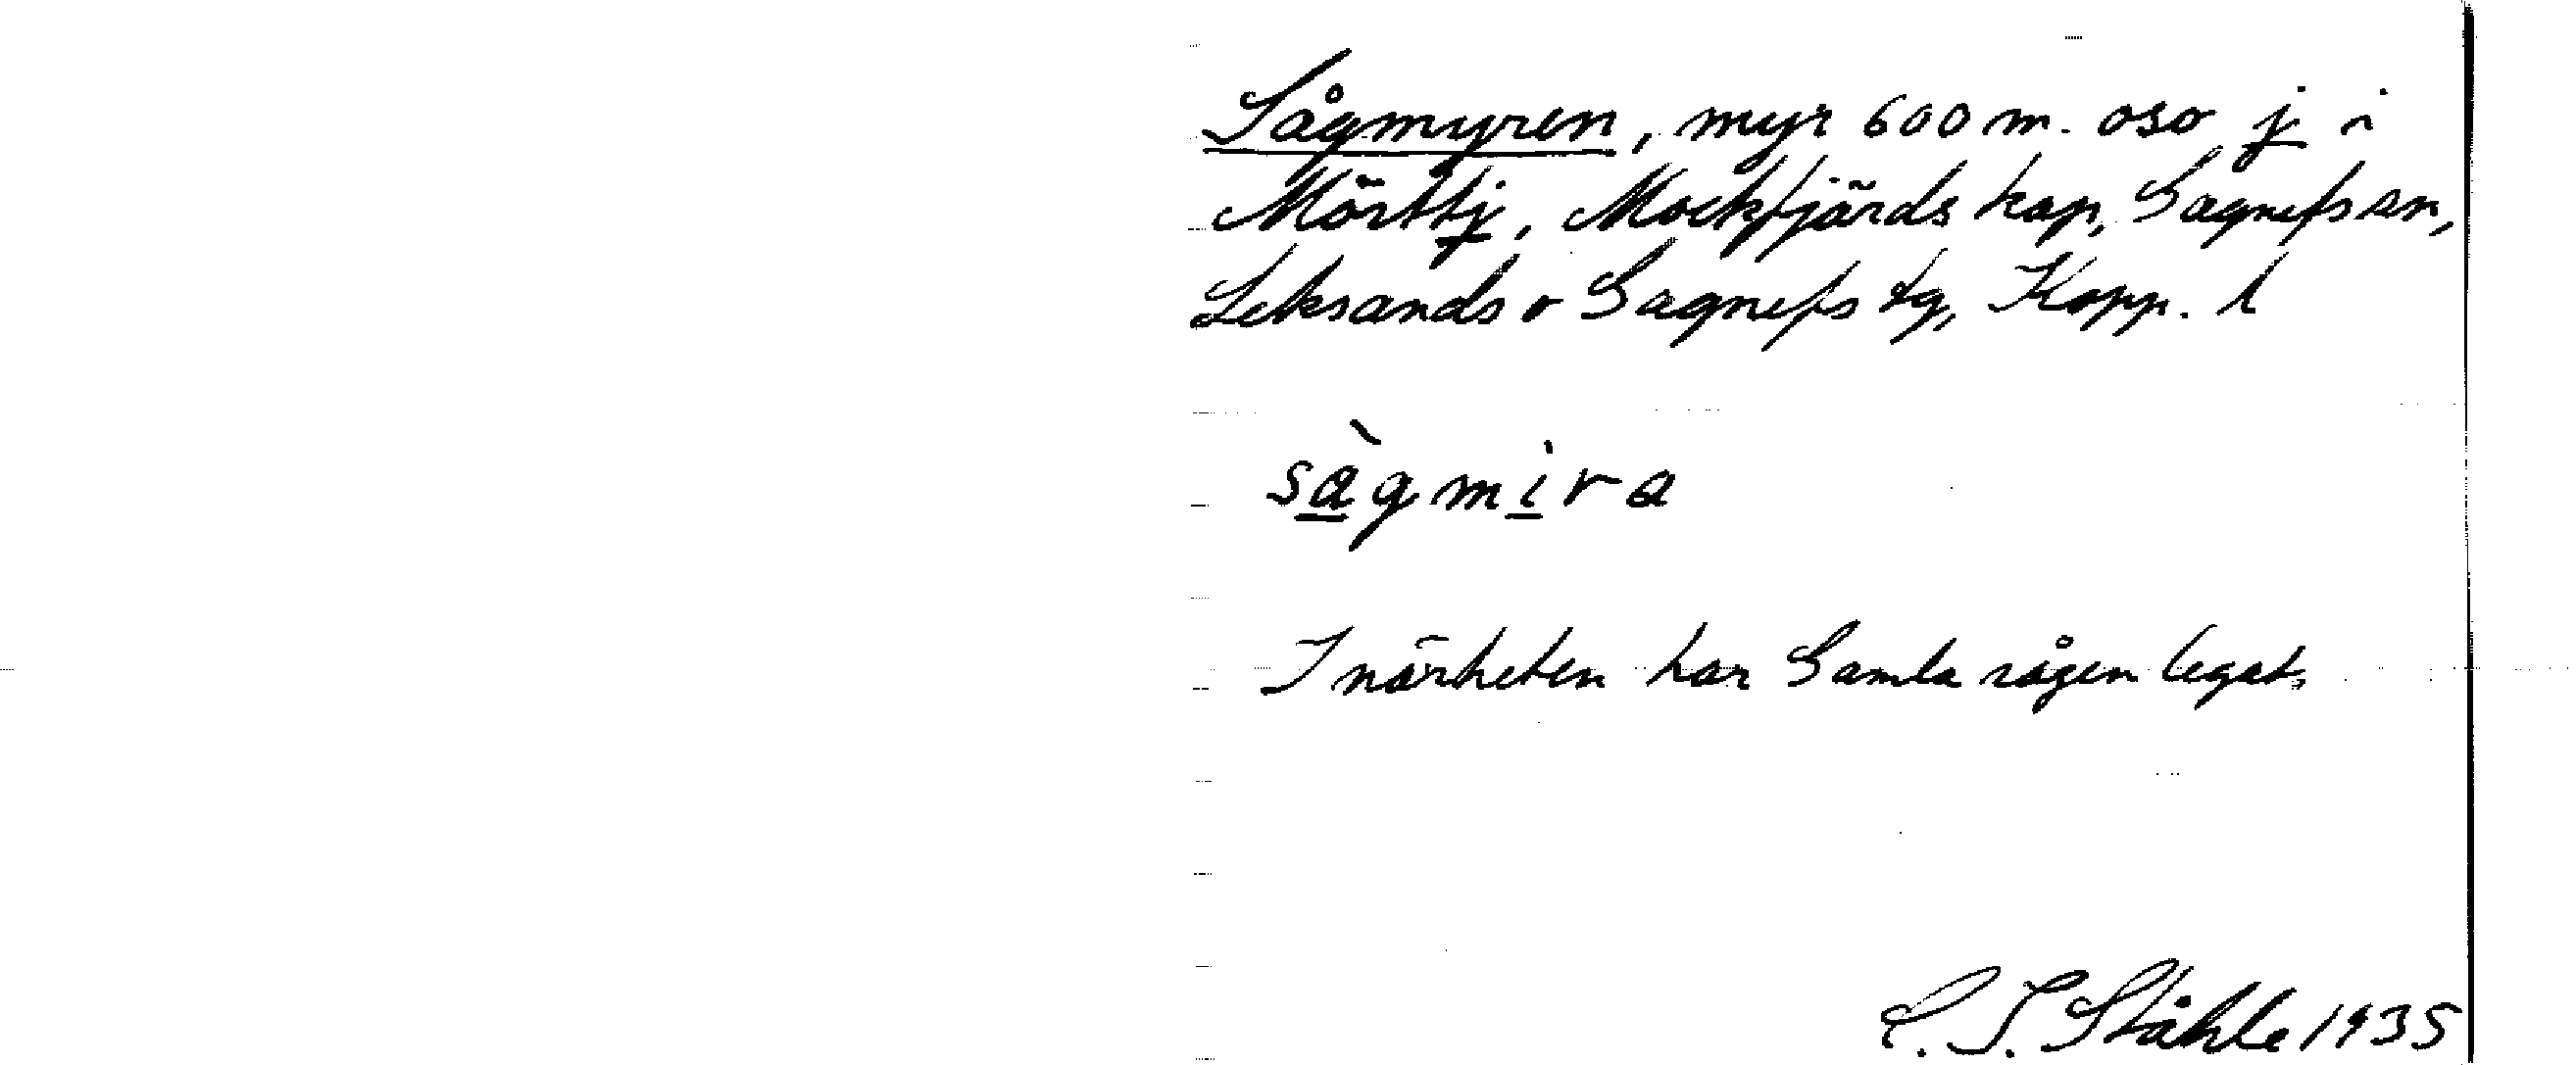 Sågmyren, myr 600 m. oso j i
Mörttj, Mockfjärds kap, Gagnefs sn,
Leksands o Gagnefs tg, Kopp. l
sàgmira
I närheten har Gamla sågen legat.
C. I. Ståhle 1935